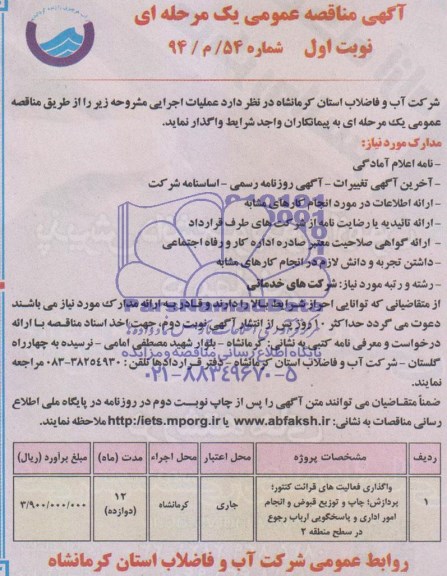 آگهی مناقصه عمومی یک مرحله ای
نوبت اول شماره ۵۴/ م / ۹۴
شرکت آب و فاضلاب استان کرمانشاه در نظر دارد عملیات اجرایی مشروحه زیر را از طریق مناقصه
عمومی یک مرحله ای به پیمانکاران واجد شرایط واگذار نماید.
مدارک مورد نیاز:
- نامه اعلام آمادگی
- آخرین آگهی تغییرات - آگهی روزنامه رسمی - اساسنامه شرکت
- ارائه اطلاعات در مورد انجام کارهای مشابه
- ارائه تائیدیه یا رضایت نامه از شرکت های طرف قرارداد
- ارائه گواهی صلاحیت معتبر صادره اداره کار و رفاه اجتماعی
- داشتن تجربه و دانش لازم در انجام کارهای مشابه
- رشته و رتبه مورد نیاز: شرکت های خدماتی
از متقاضیانی که توانایی احراز شرایط بالا را دارند و قادر به ارائه مدارک مورد نیاز می باشند
دعوت می گردد حداکثر ۱۰ روز پس از انتشار آگهی نوبت دوم، جهت اخذ اسناد مناقصه با ارائه
درخواست و معرفی نامه کتبی به نشانی: کرمانشاه - بلوار شهید مصطفی امامی - نرسیده به چهارراه
گلستان - شرکت آب و فاضلاب استان کرمانشاه - دفتر قراردادها تلفن: ۳۸۲۵۴۹۳۰-۰۸۳ مراجعه
نمایند.
پایگاه اطلاع رسانی مناقصه و مزایده
۰۲۱-۸۸۳۴۹۶۷۰-۵
ضمناً متقاضیان می توانند متن آگهی را پس از چاپ نوبت دوم در روزنامه در پایگاه ملی اطلاع
رسانی مناقصات به نشانی: www.abfaksh.ir یا http:/iets.mporg.ir ملاحظه نمایند.
ردیف مشخصات پروژه محل اعتبار محل اجراء مدت (ماه) مبلغ برآورد (ریال)
۱ واگذاری فعالیت های قرائت کنتور؛ پردازش؛ چاپ و توزیع قبوض و انجام امور اداری و پاسخگویی ارباب رجوع در سطح منطقه ۲ جاری کرمانشاه ۱۲ (دوازده) ۳/۹۰۰/۰۰۰/۰۰۰
روابط عمومی شرکت آب و فاضلاب استان کرمانشاه